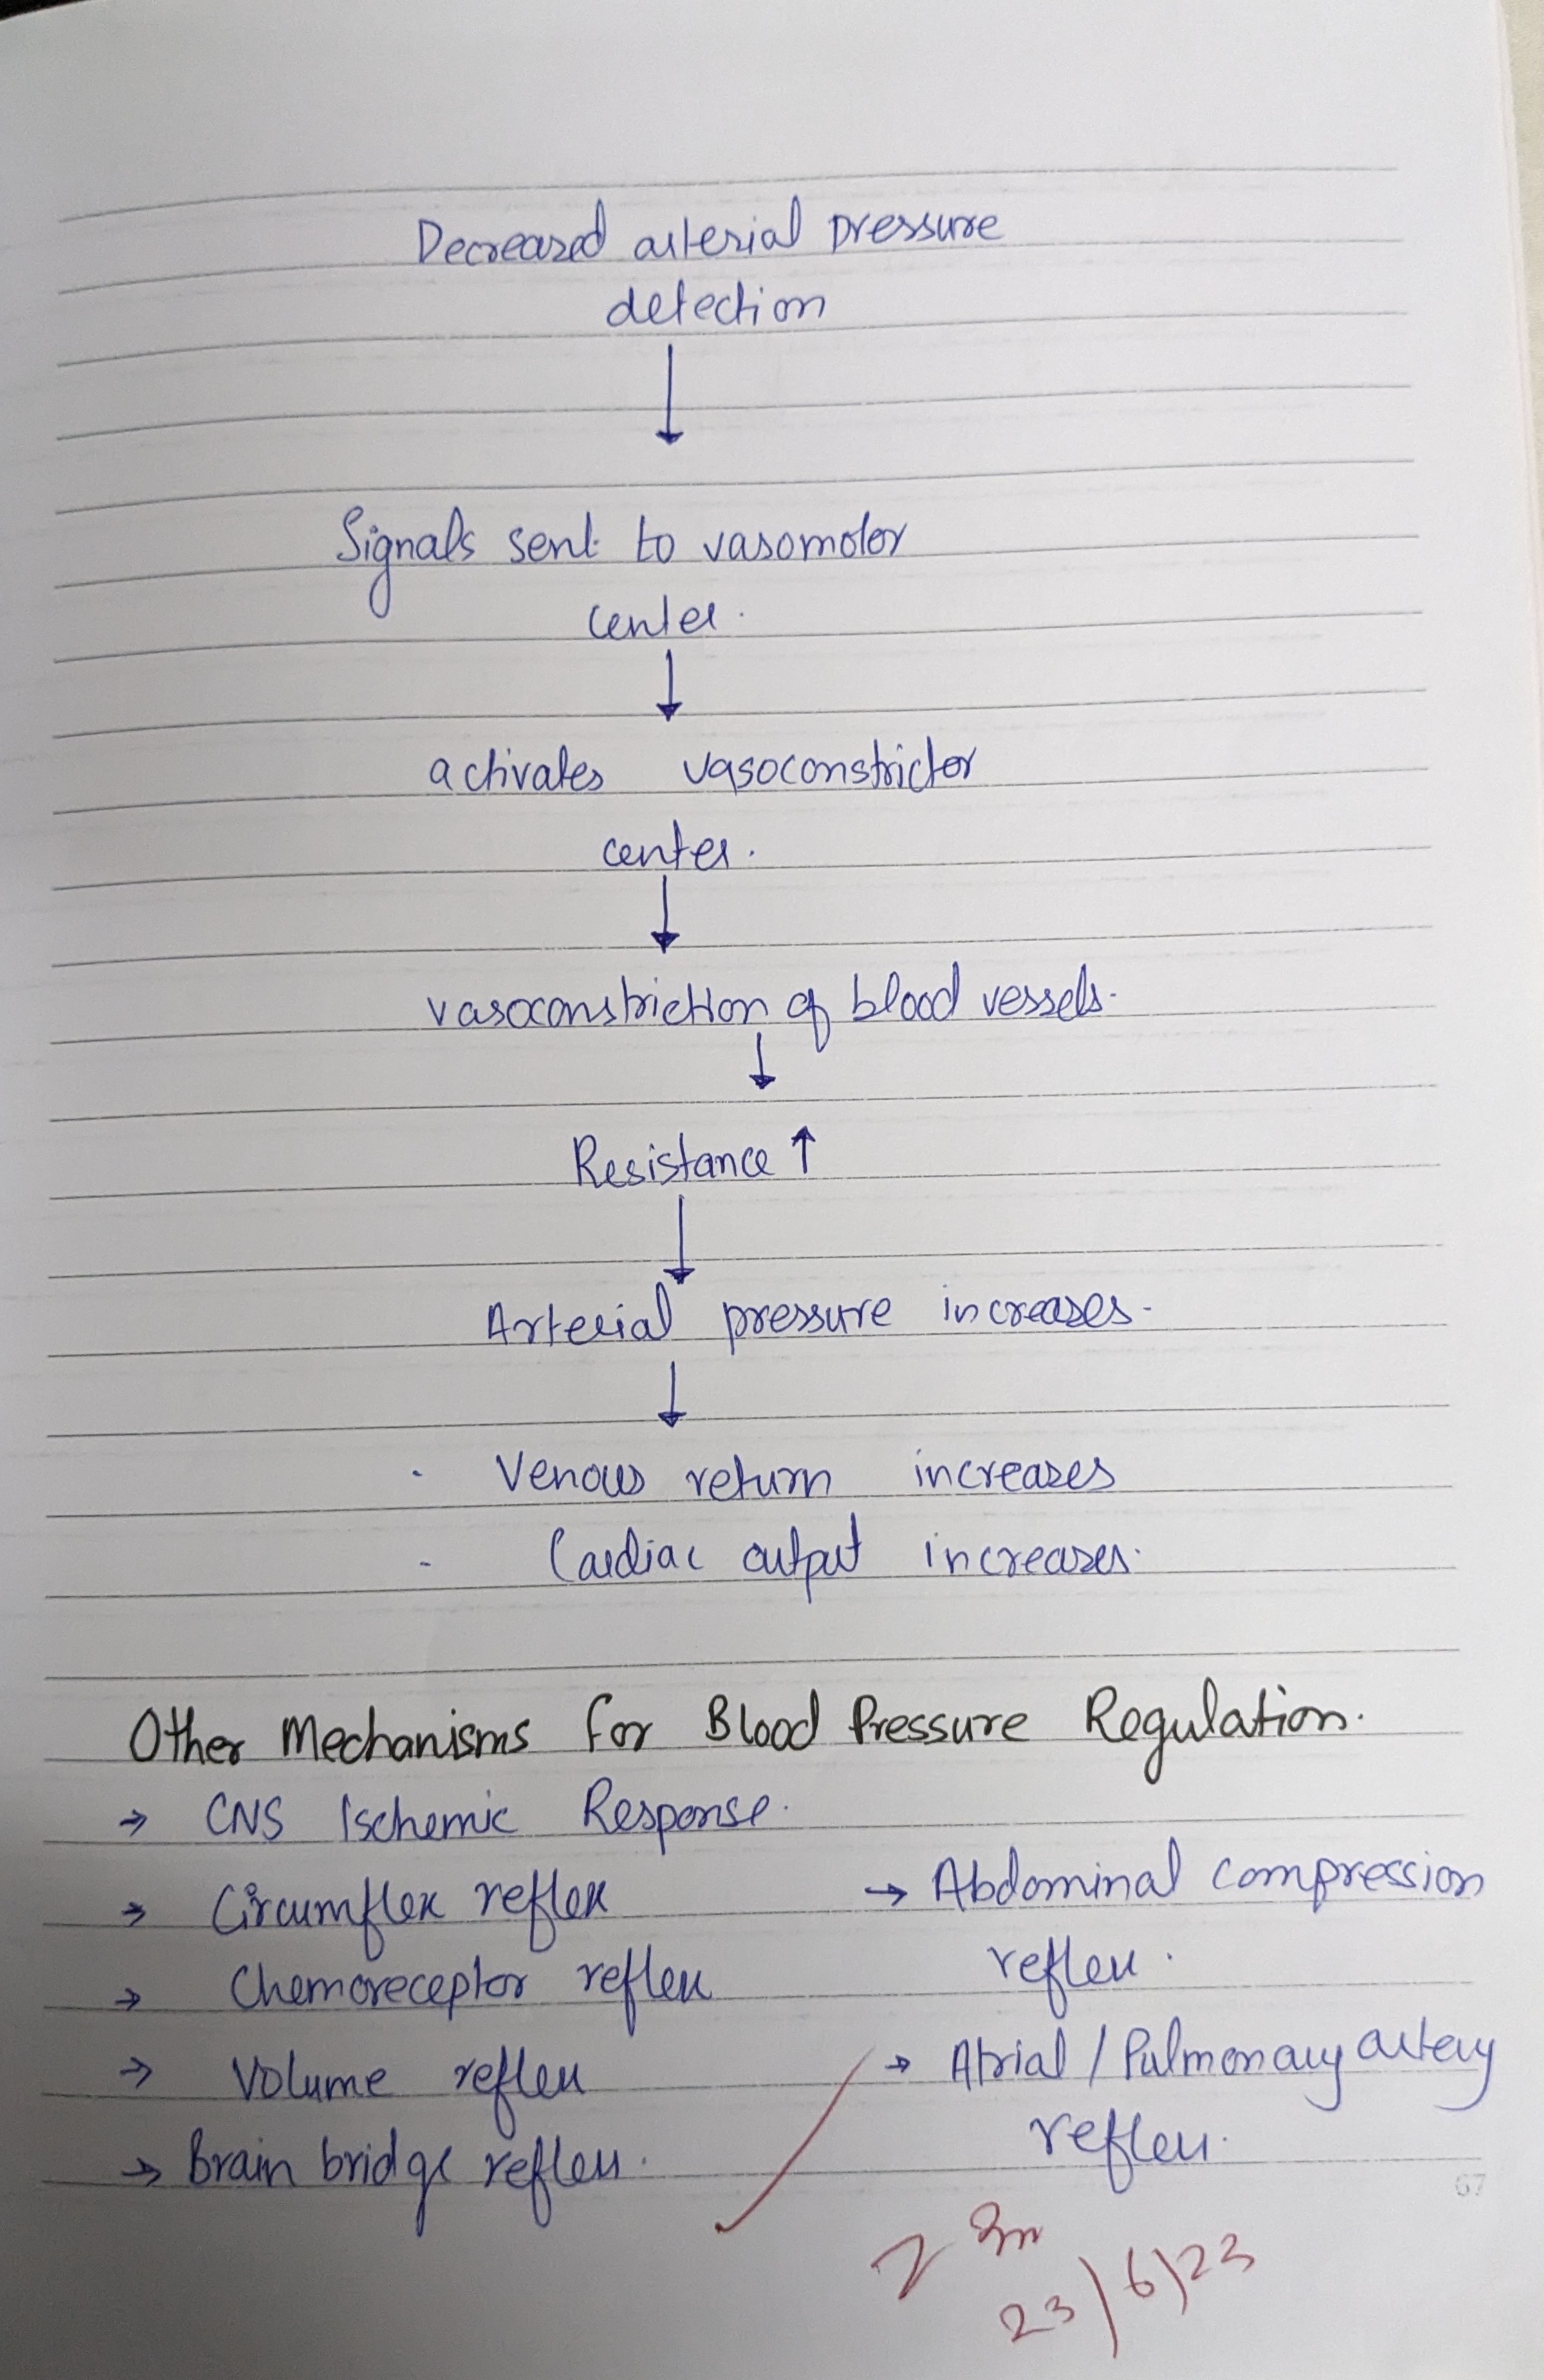 Decreased arterial pressure
detection
↓
Signals sent to vasomotor
center.
↓
activates vasoconstrictor
center.
↓
vasoconstriction of blood vessels.
↓
Resistance ↑
↓
Arterial pressure increases.
↓
- Venous return increases
- Cardiac output increases.
Other Mechanisms for Blood Pressure Regulation.
→ CNS Ischemic Response.
→ Circumflex reflex
→ Chemoreceptor reflex
→ Volume reflex
→ Brain bridge reflex.
→ Abdominal compression
reflex.
→ Atrial / Pulmonary artery
reflex.
67
23/6/23